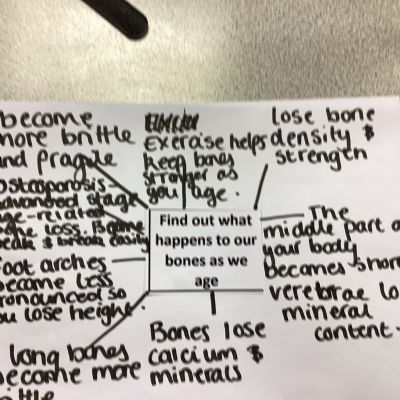 become
more brittle
and fragile
Exercise helps
keep bones
stronger as
you age.
lose bone
density &
strength
Osteoporosis-
advanced stage
age-related
bone loss. Bones
weak & break easily
Find out what
happens to our
bones as we
age
The
middle part of
your body
becomes shorter
verebrae lose
mineral
content.
foot arches
become less
pronounced so
you lose height.
long bones
become more
brittle
Bones lose
calcium &
minerals